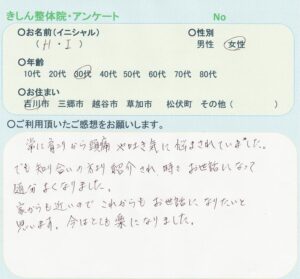 きしん整体院・アンケート No
○お名前(イニシャル)
(H・I)
○性別
男性 女性
○年齢
10代 20代 30代 40代 50代 60代 70代 80代
○お住まい
吉川市 三郷市 越谷市 草加市 松伏町 その他( )
○ご利用頂いたご感想をお願いします。
常に肩こりから頭痛や吐き気に悩まされていました。
でも知り合いの方より紹介され 時々お世話になって
随分よくなりました。
家からも近いので これからもお世話になりたいと
思います。今はとても楽になりました。